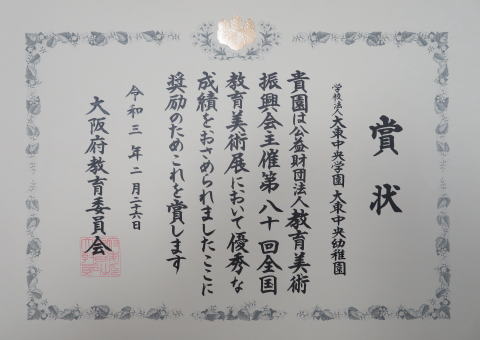 賞状
学校法人大東中央学園 大東中央幼稚園
貴園は公益財団法人教育美術
振興会主催第八十回全国
教育美術展において優秀な
成績をおさめられましたここに
奨励のためこれを賞します
令和三年二月二十六日
大阪府教育委員会